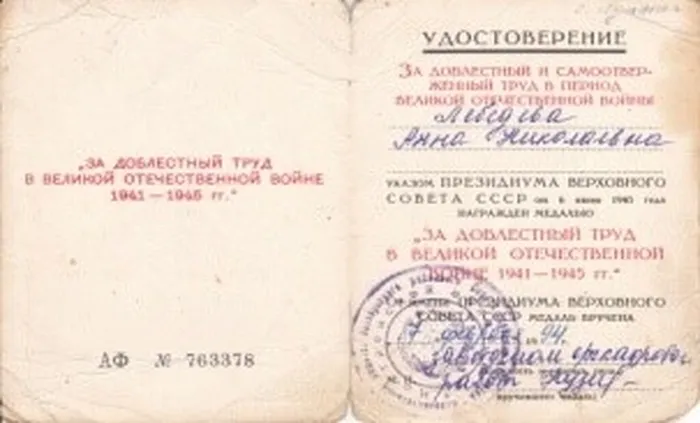 „ЗА ДОБЛЕСТНЫЙ ТРУД
В ВЕЛИКОЙ ОТЕЧЕСТВЕННОЙ ВОЙНЕ
1941—1945 гг.“
АФ № 763378
УДОСТОВЕРЕНИЕ
ЗА ДОБЛЕСТНЫЙ И САМООТВЕР-
ЖЕННЫЙ ТРУД В ПЕРИОД
ВЕЛИКОЙ ОТЕЧЕСТВЕННОЙ ВОЙНЫ
Лебедева
Анна Николаевна
УКАЗОМ ПРЕЗИДИУМА ВЕРХОВНОГО
СОВЕТА СССР от 6 июня 1945 года
НАГРАЖДЕН МЕДАЛЬЮ
„ЗА ДОБЛЕСТНЫЙ ТРУД
В ВЕЛИКОЙ ОТЕЧЕСТВЕННОЙ
ВОЙНЕ 1941—1945 гг.“
ПРЕЗИДИУМА ВЕРХОВНОГО
СОВЕТА СССР МЕДАЛЬ ВРУЧЕНА